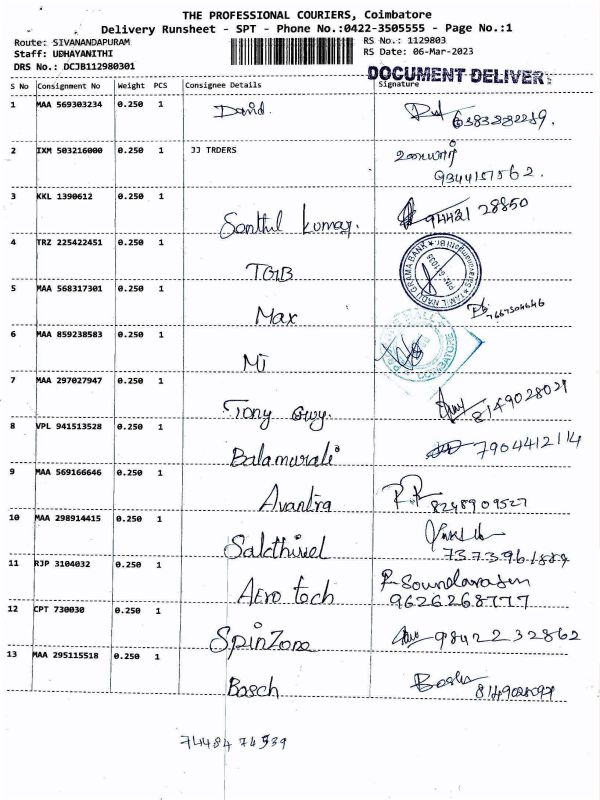 THE PROFESSIONAL COURIERS, Coimbatore
Delivery Runsheet - SPT - Phone No.:0422-3505555 - Page No.:1
Route: SIVANANDAPURAM RS No.: 1129803
Staff: UDHAYANITHI RS Date: 06-Mar-2023
DRS No.: DCJB112980301 DOCUMENT DELIVER
S No Consignment No Weight PCS Consignee Details Signature
1 MAA 569303234 0.250 1 David. 6383282289.
2 IXM 503216000 0.250 1 JJ TRDERS
9344157562.
3 KKL 1390612 0.250 1 94421 28850
Santhul kumar.
4 TRZ 225422451 0.250 1 TAMIL NADU GRAMA BANK
TGB
5 MAA 568317301 0.250 1 7667504646
Max
6 MAA 859238583 0.250 1
MI
7 MAA 297027947 0.250 1 8149028029
Tony Guy.
8 VPL 941513528 0.250 1 7904412114
Balamurali
9 MAA 569166646 0.250 1
Avantra 8248909527
10 MAA 298914415 0.250 1
Sakthivel 7373961889
11 RJP 3104032 0.250 1 R Soundararasan
Aero tech 9626268777
12 CPT 730030 0.250 1 98422 32862
SpinZone
13 MAA 295115518 0.250 1 Bosch
Bosch 8149028097
74484 74539